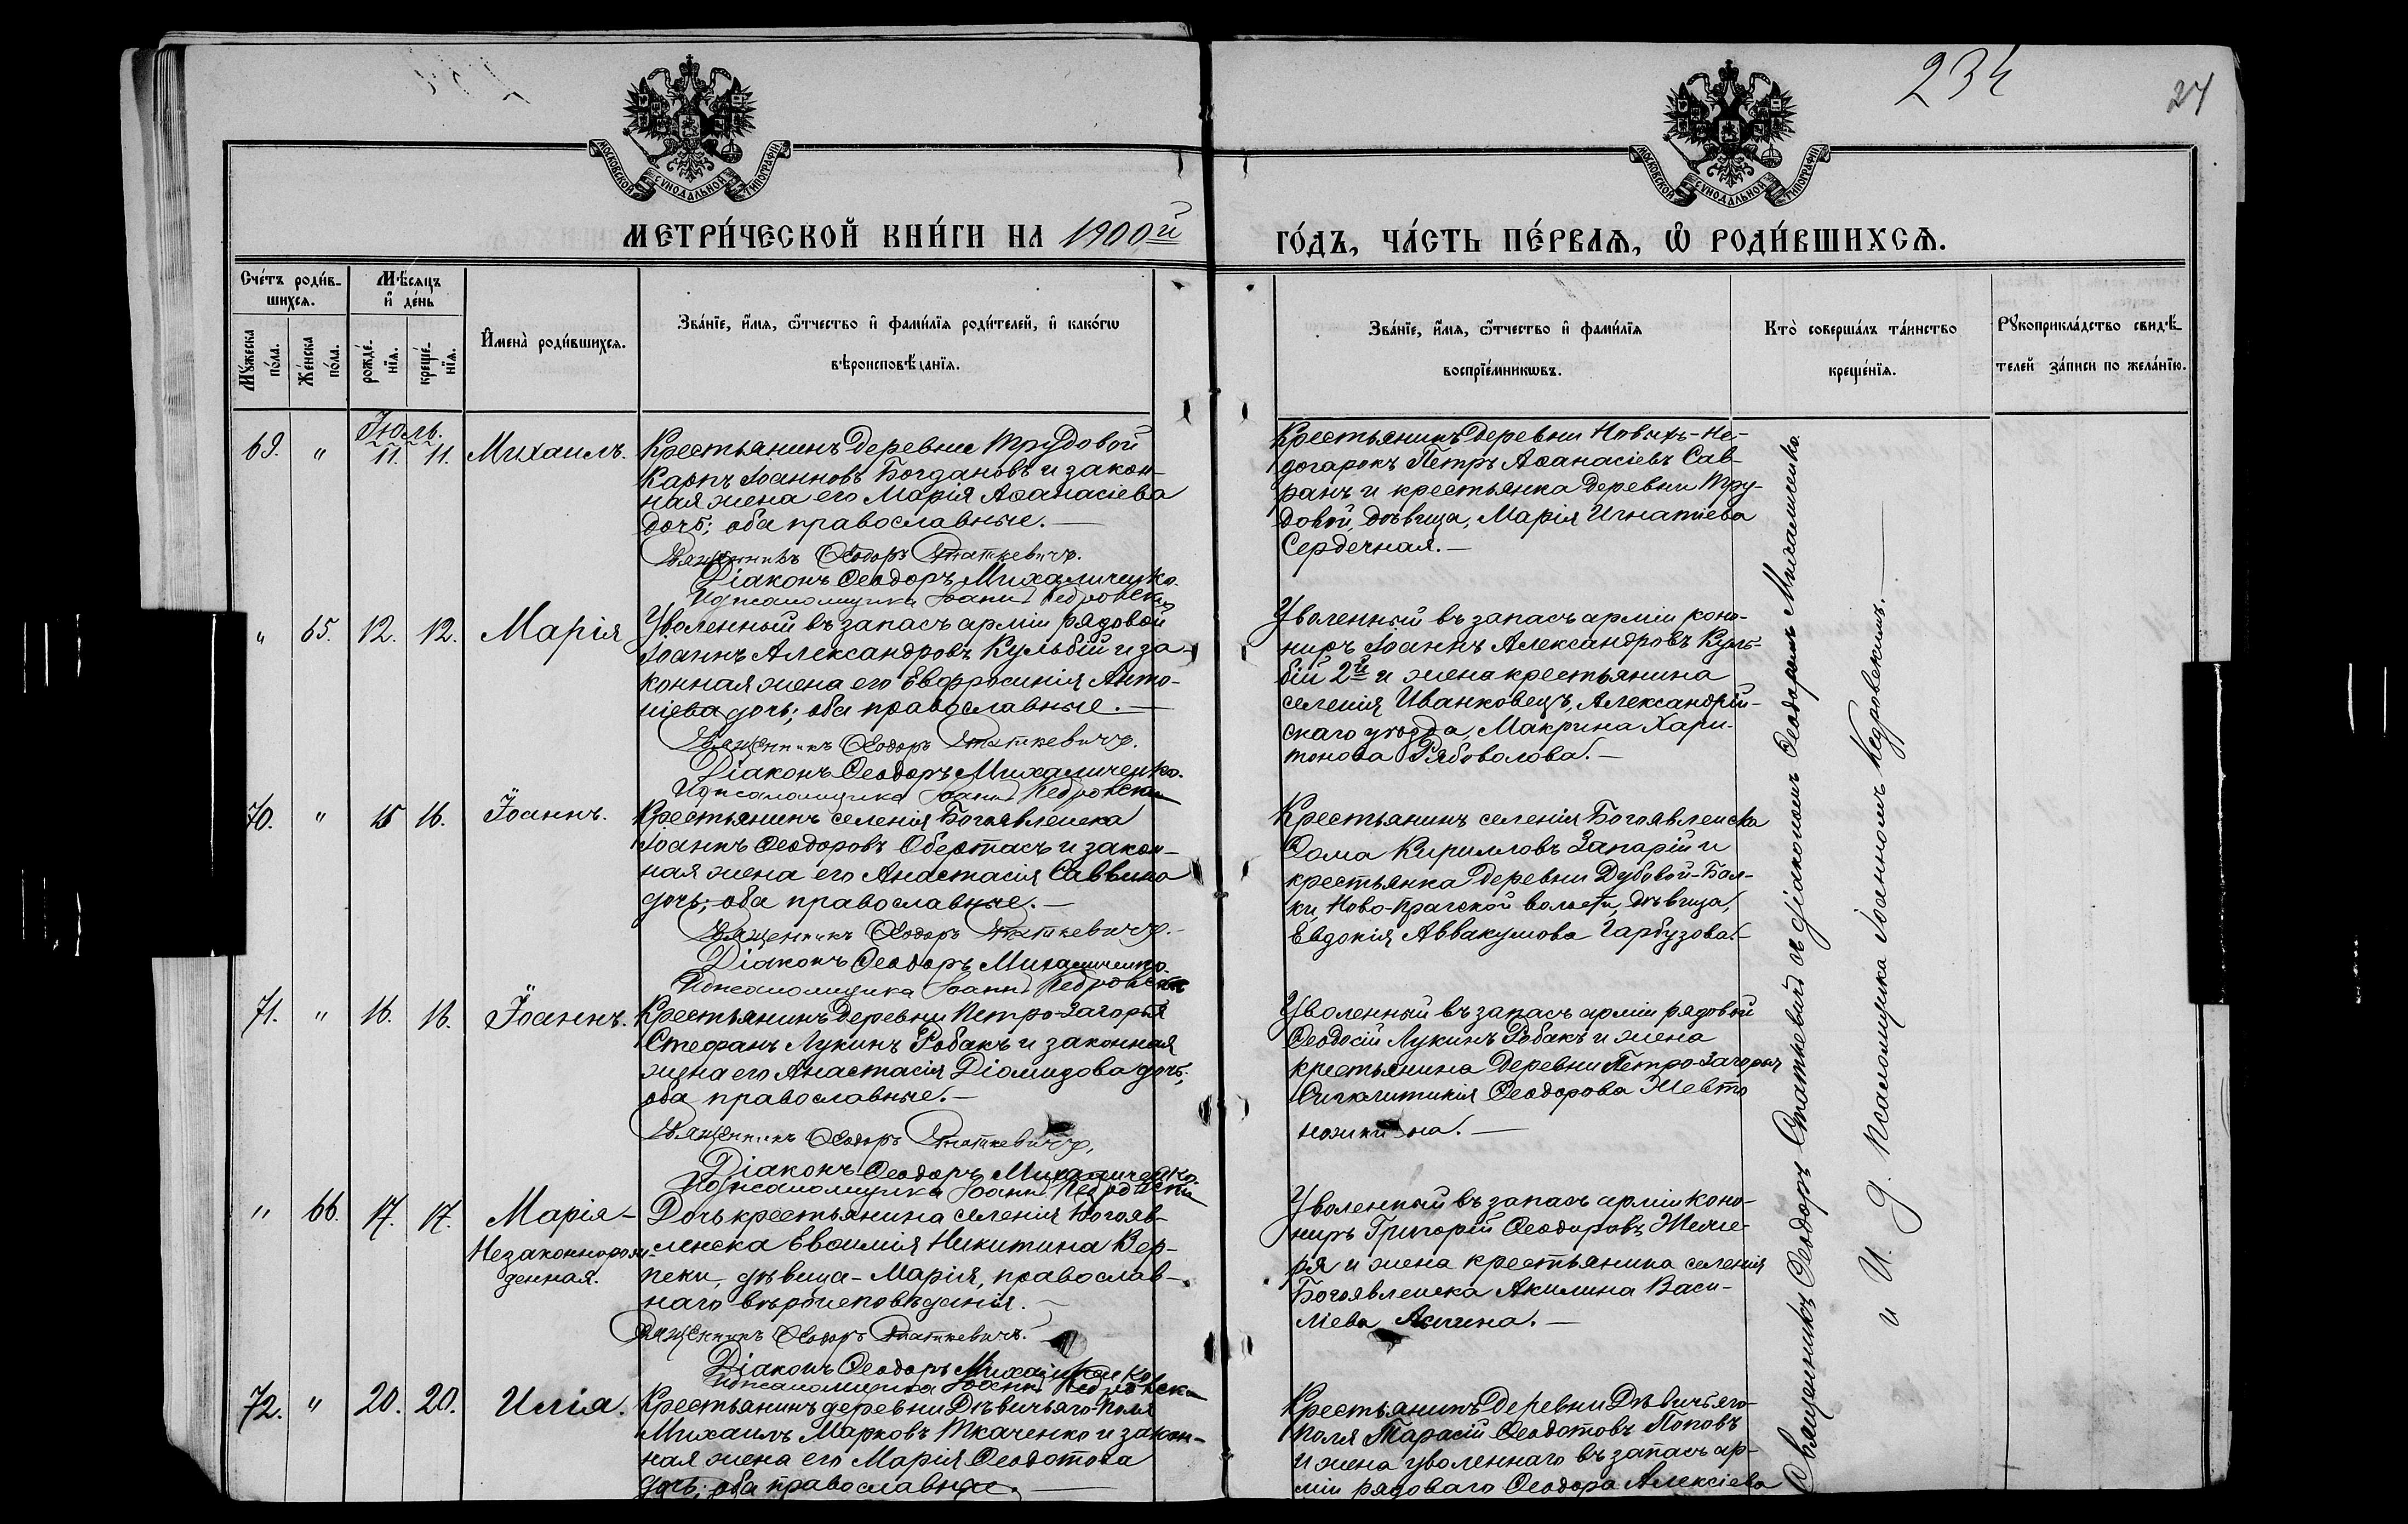 234
27
МОСКОВСКОЙ СѴНОДАЛЬНОЙ ТИПОГРАФІИ
МОСКОВСКОЙ СѴНОДАЛЬНОЙ ТИПОГРАФІИ
МЕТРИ́ЧЕСКОЙ КНИ́ГИ НА 1900й
ГО́ДЪ, ЧА́СТЬ ПЕ́РВАѦ, Ѽ РОДИ́ВШИХСѦ.
Сче́тъ роди́в-
шихсѧ.
Мꙋ́жеска по́ла.
Же́нска по́ла.
Мѣ́сѧцъ
и҆ де́нь
рожде́-
нїѧ.
креще́-
нїѧ.
И҆мена̀ роди́вшихсѧ.
Зва́нїе, и҆́мѧ, ѻ҆́тчество и҆ фами́лїѧ роди́телей, и҆ како́гѡ
вѣроисповѣ́данїѧ.
Зва́нїе, и҆́мѧ, ѻ҆́тчество и҆ фами́лїѧ
воспрїе́мникѡвъ.
Кто̀ соверша́лъ та́инство
креще́нїѧ.
Рꙋкоприкла́дство свидѣ́-
телей за́писи по жела́нїю.
Іюль.
69. " 11. 11. Михаилъ.
Крестьянинъ деревни Трудовой
Карпъ Іоанновъ Богдановъ и закон-
ная жена его Марія Аѳанасіева
дочь; оба православные.—
Священникъ Ѳеодоръ Статкевичъ.
Діаконъ Ѳеодоръ Михаличенко.
И д псаломщика Іоаннъ Кедровскій
Крестьянинъ деревни Новыхъ-Не-
догарокъ Петръ Аѳанасіевъ Сав-
ранъ и крестьянка деревни Тру-
довой, дѣвица, Марія Игнатіева
Сердечная.—
" 65. 12. 12. Марія
Уволенный въ запасъ арміи рядовой
Іоаннъ Александровъ Кульбій и за-
конная жена его Евфросинія Анто-
ніева дочь; оба православные.—
Священникъ Ѳеодоръ Статкевичъ.
Діаконъ Ѳеодоръ Михаличенко.
И д псаломщика Іоаннъ Кедровскій
Уволенный въ запасъ арміи коно-
ниръ Іоаннъ Александровъ Куль-
бій 2й и жена крестьянина
селенія Иванковецъ, Александрій-
скаго уѣзда, Макрина Хари-
тонова Рябоволова.—
70. " 15 16. Іоаннъ.
Крестьянинъ селенія Богоявленска
Іоаннъ Ѳеодоровъ Обертасъ и закон-
ная жена его Анастасія Саввина
дочь; оба православные.—
Священникъ Ѳеодоръ Статкевичъ.
Діаконъ Ѳеодоръ Михаличенко.
И д псаломщика Іоаннъ Кедровскій
Крестьянинъ селенія Богоявленска
Ѳома Кирилловъ Запарій и
крестьянка деревни Дубовой-Бал-
ки, Ново-Прагской волости, дѣвица,
Евдокія Аввакумова Гарбузова.—
71. " 16. 16. Іоаннъ.
Крестьянинъ деревни Петро-Загорья
Стефанъ Лукинъ Робакъ и законная
жена его Анастасія Діомидова дочь;
оба православные.—
Священникъ Ѳеодоръ Статкевичъ,
Діаконъ Ѳеодоръ Михаличенко.
И д псаломщика Іоаннъ Кедровскій
Уволенный въ запасъ арміи рядовой
Ѳеодосій Лукинъ Робакъ и жена
крестьянина деревни Петро-Загорья
Сигклитикія Ѳеодорова Жевто
" 66. 17. 17. Марія-
Незаконнорож-
денная.
Дочь крестьянина селенія Богояв-
ленска Евѳимія Никитина Вер-
пеки, дѣвица - Марія, православ-
наго вѣроисповѣданія.—
Священникъ Ѳеодоръ Статкевичъ.
Діаконъ Ѳеодоръ Михаличенко
И д псаломщика Іоаннъ Кедровскій
Уволенный въ запасъ арміи коно-
ниръ Григорій Ѳеодоровъ
и жена крестьянина селенія
Богоявленска Акилина Васи-
ліева
72. " 20. 20. Илія.
Крестьянинъ деревни Дѣвичьяго-Поля
Михаилъ Марковъ Ткаченко и закон-
ная жена его Марія Ѳеодотова
дочь; оба православные.—
Крестьянинъ деревни Дѣвичьяго-
Поля Тарасій Ѳеодотовъ Поповъ
и жена уволеннаго въ запасъ ар-
міи рядоваго Ѳеодора Алексіева
Священникъ Ѳеодоръ Статкевичъ съ діакономъ Ѳеодоромъ Михаличенко.
и И. д. псаломщика Іоанномъ Кедровскимъ.—